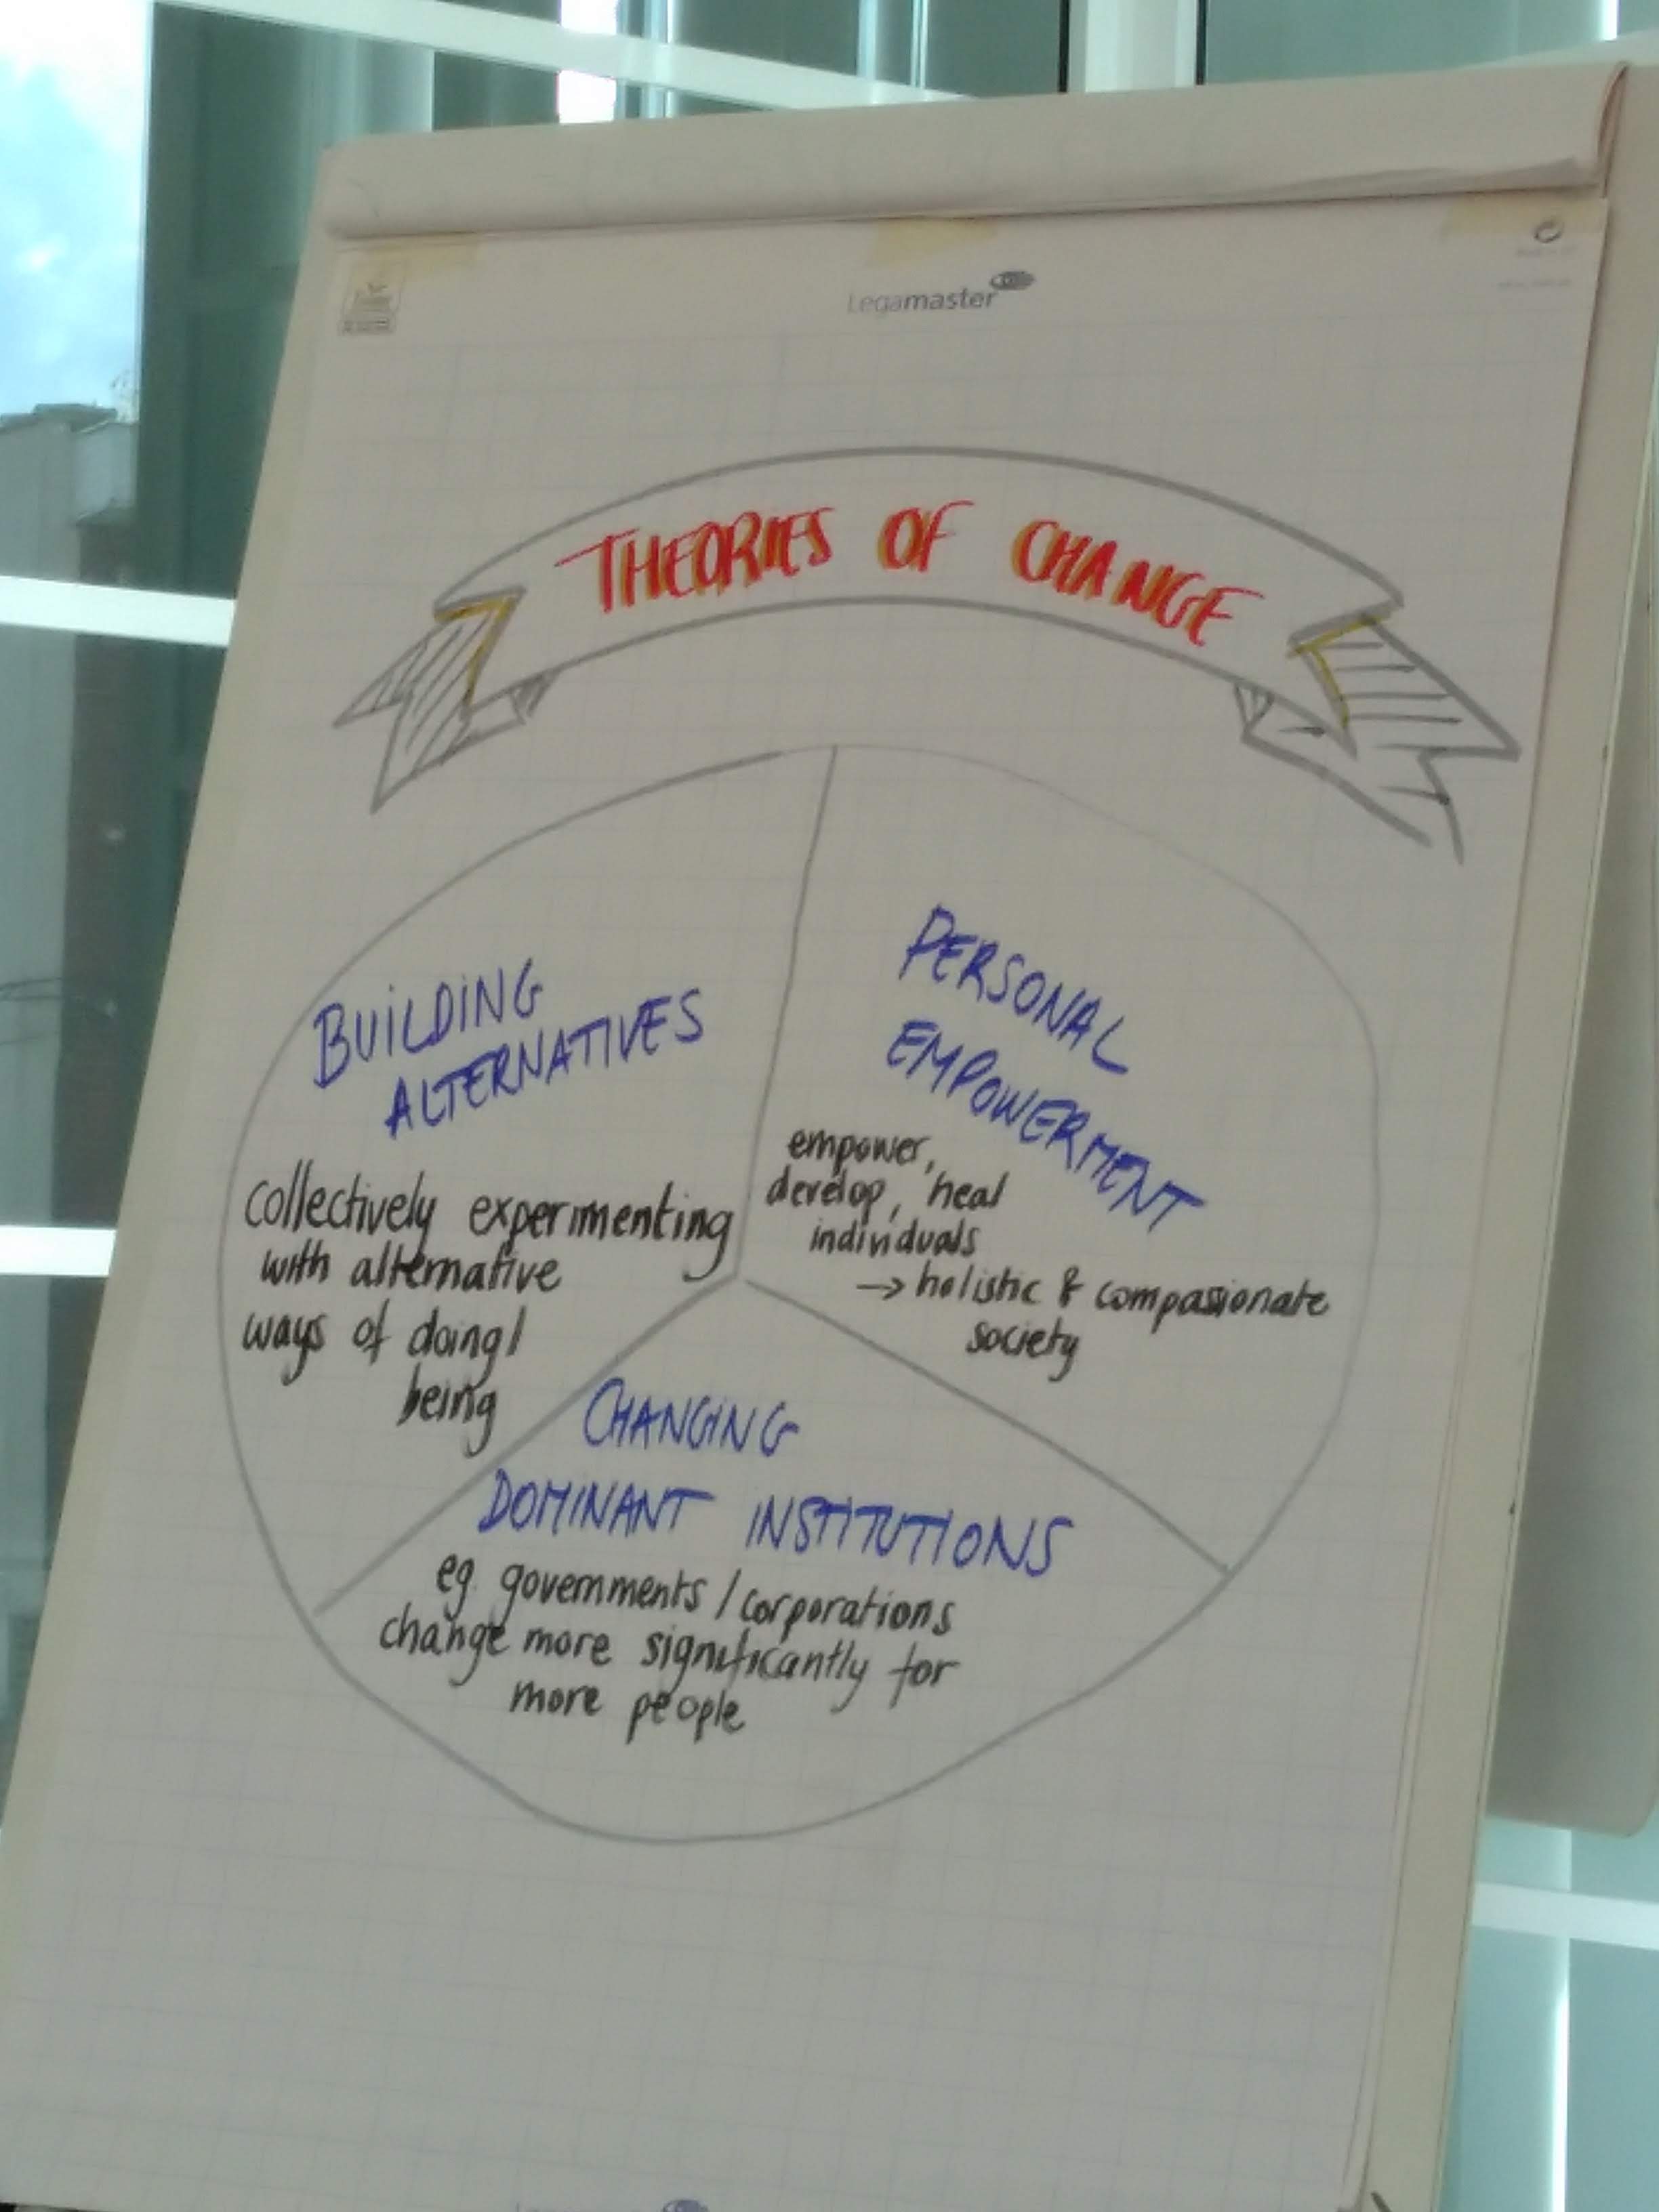 Legamaster
THEORIES OF CHANGE
BUILDING
ALTERNATIVES
collectively experimenting
with alternative
ways of doing/
being
PERSONAL
EMPOWERMENT
empower,
develop, heal
individuals
→ holistic & compassionate
society
CHANGING
DOMINANT INSTITUTIONS
eg. governments / corporations
change more significantly for
more people